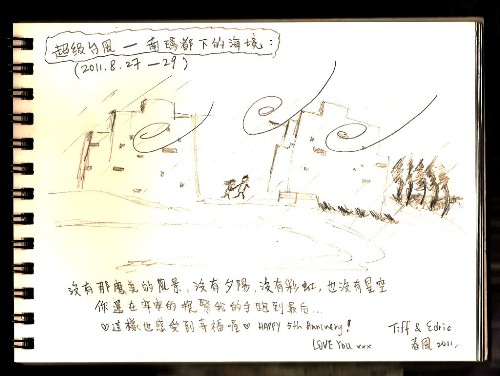 超級台風 — 南瑪都下的海境：
(2011.8.27 — 29)
沒有那麼美的風景，沒有夕陽，沒有彩虹，也沒有星空
你還在牢牢的握緊我的手跑到最後...
♡這樣也感受到幸福喔♡ HAPPY 5th
LOVE YOU xxx
Tiff & Edric
2011.